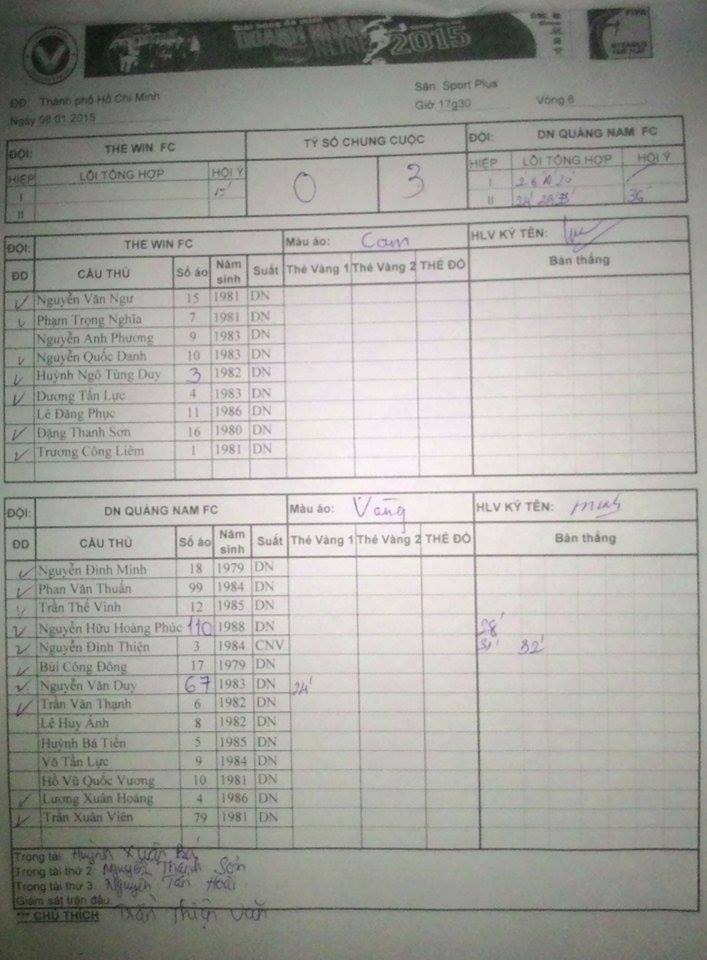 DOANH NHÂN
ONLINE 2015
FIFA
ĐĐ: Thành phố Hồ Chí Minh
Sân: Sport Plus
Ngày 08.01.2015
Giờ 17g30 Vòng 6
ĐỘI: THE WIN FC TỶ SỐ CHUNG CUỘC ĐỘI: DN QUẢNG NAM FC
HIỆP LỖI TỔNG HỢP HỘI Ý 0 3 HIỆP LỖI TỔNG HỢP HỘI Ý
I 15' I
II II 36'
ĐỘI: THE WIN FC Màu áo: Cam HLV KÝ TÊN:
ĐD CẦU THỦ Số áo Năm sinh Suất Thẻ Vàng 1 Thẻ Vàng 2 THẺ ĐỎ Bàn thắng
Nguyễn Văn Ngư 15 1981 DN
Phạm Trọng Nghĩa 7 1981 DN
Nguyễn Anh Phương 9 1983 DN
Nguyễn Quốc Danh 10 1983 DN
Huỳnh Ngô Tùng Duy 3 1982 DN
Dương Tấn Lực 4 1983 DN
Lê Đăng Phục 11 1986 DN
Đặng Thanh Sơn 16 1980 DN
Trương Công Liêm 1 1981 DN
ĐỘI: DN QUẢNG NAM FC Màu áo: Vàng HLV KÝ TÊN: minh
ĐD CẦU THỦ Số áo Năm sinh Suất Thẻ Vàng 1 Thẻ Vàng 2 THẺ ĐỎ Bàn thắng
Nguyễn Đình Minh 18 1979 DN
Phan Văn Thuấn 99 1984 DN
Trần Thế Vinh 12 1985 DN
Nguyễn Hữu Hoàng Phúc 110 1988 DN 28'
Nguyễn Đình Thiện 3 1984 CNV 31' 32'
Bùi Công Đông 17 1979 DN
Nguyễn Văn Duy 67 1983 DN 24'
Trần Văn Thạnh 6 1982 DN
Lê Huy Ánh 8 1982 DN
Huỳnh Bá Tiến 5 1985 DN
Võ Tấn Lực 9 1984 DN
Hồ Vũ Quốc Vương 10 1981 DN
Lương Xuân Hoàng 4 1986 DN
Trần Xuân Viên 79 1981 DN
Trọng tài: Huỳnh Xuân Bá
Trọng tài thứ 2: Nguyễn Thanh Sơn
Trọng tài thứ 3: Nguyễn Tấn Hoài
Giám sát trận đấu:
*** CHÚ THÍCH Trần Thiện Văn